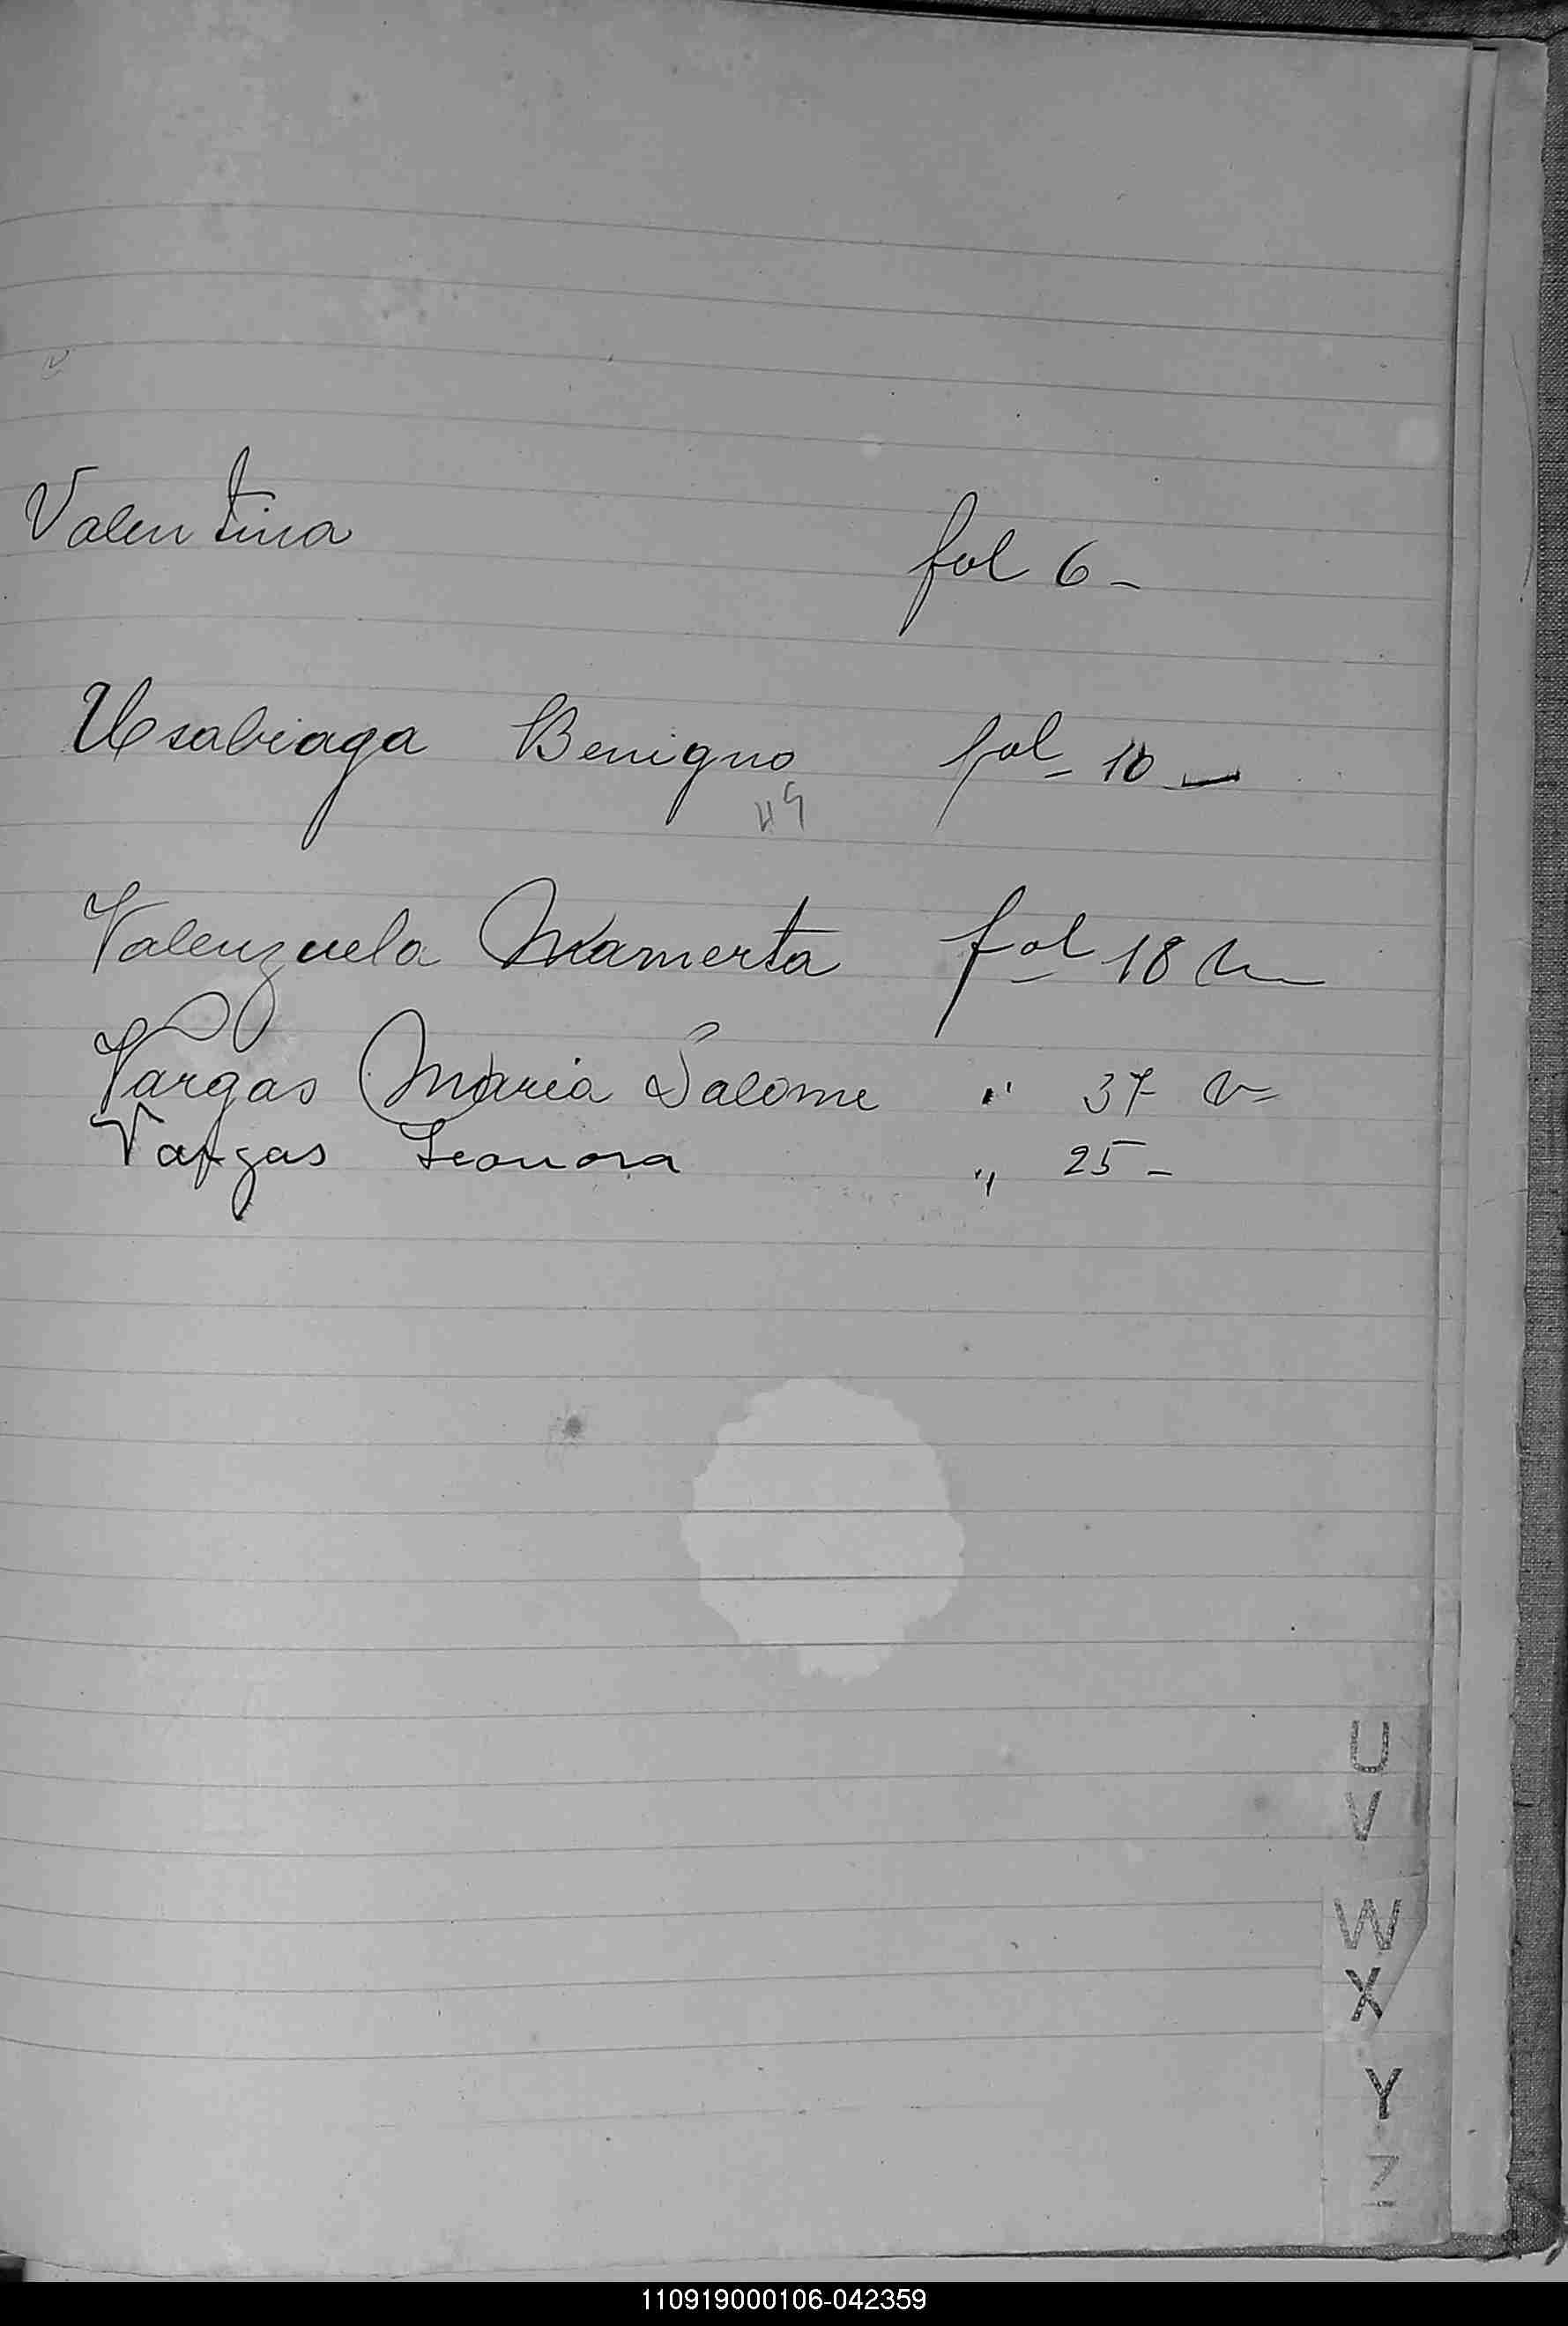 Valentina fol 6 -
Usabiaga Benigno fol- 10 -
49
Valenzuela Mamerta fol 18 v
Vargas Maria Salome " 37 v
Vargas Leonora " 25 -
U
V
W
X
Y
Z
110919000106-042359